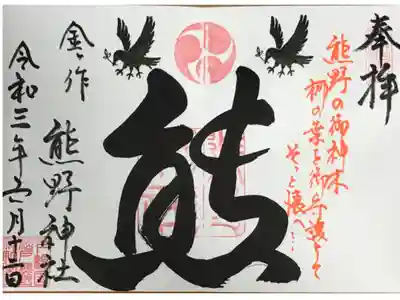 奉拝
熊野の御神木
梛の葉を御守護として
そっと懐へ…
熊
金ヶ作 熊野神社
令和三年六月十二日